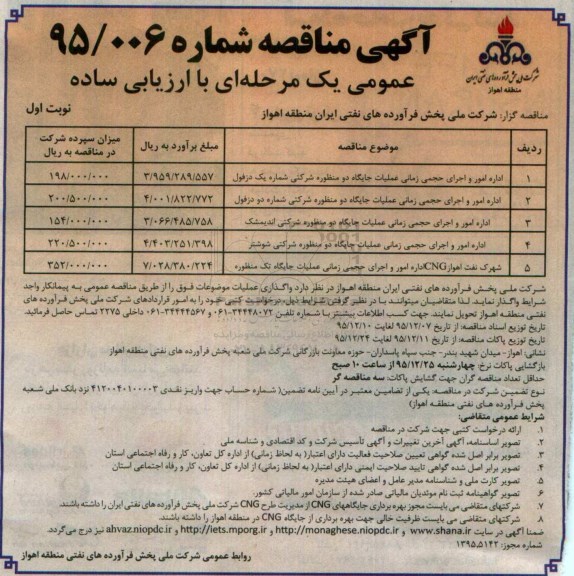 آگهی مناقصه شماره ۹۵/۰۰۶
عمومی یک مرحله‌ای با ارزیابی ساده
شرکت ملی پخش فرآورده‌های نفتی ایران
منطقه اهواز
نوبت اول
مناقصه گزار: شرکت ملی پخش فرآورده های نفتی ایران منطقه اهواز
ردیف موضوع مناقصه مبلغ برآورد به ریال میزان سپرده شرکت در مناقصه به ریال
۱ اداره امور و اجرای حجمی زمانی عملیات جایگاه دو منظوره شرکتی شماره یک دزفول ۳/۹۵۹/۲۸۹/۵۵۷ ۱۹۸/۰۰۰/۰۰۰
۲ اداره امور و اجرای حجمی زمانی عملیات جایگاه دو منظوره شرکتی شماره دو دزفول ۴/۰۰۱/۸۲۲/۷۷۲ ۲۰۰/۵۰۰/۰۰۰
۳ اداره امور و اجرای حجمی زمانی عملیات جایگاه دو منظوره شرکتی اندیمشک ۳/۰۶۶/۴۸۵/۷۵۸ ۱۵۴/۰۰۰/۰۰۰
۴ اداره امور و اجرای حجمی زمانی عملیات جایگاه دو منظوره شرکتی شوشتر ۴/۴۰۳/۲۵۱/۳۹۸ ۲۲۰/۵۰۰/۰۰۰
۵ شهرک نفت اهواز CNG اداره امور و اجرای حجمی زمانی عملیات جایگاه تک منظوره ۷/۰۲۸/۳۸۰/۲۲۴ ۳۵۲/۰۰۰/۰۰۰
شرکت ملی پخش فرآورده های نفتی ایران منطقه اهواز در نظر دارد واگذاری عملیات موضوعات فوق را از طریق مناقصه عمومی به پیمانکار واجد
شرایط واگذار نماید. لذا متقاضیان میتوانند با در نظر گرفتن شرایط ذیل، درخواست کتبی خود را به امور قراردادهای شرکت ملی پخش فرآورده های
نفتی منطقه اهواز تحویل نمایند. جهت کسب اطلاعات بیشتر با شماره تلفن ۳۴۴۴۸۰۷۲-۰۶۱ و ۳۴۴۴۴۵۶۷-۰۶۱ داخلی ۲۲۷۵ تماس حاصل فرمائید.
تاریخ توزیع اسناد مناقصه: از تاریخ ۹۵/۱۲/۰۷ لغایت ۹۵/۱۲/۱۰
تاریخ توزیع پاکات مناقصه: از تاریخ ۹۵/۱۲/۱۱ لغایت ۹۵/۱۲/۲۴
نشانی: اهواز- میدان شهید بندر- جنب سپاه پاسداران- حوزه معاونت بازرگانی شرکت ملی شعبه پخش فرآورده های نفتی منطقه اهواز
بازگشایی پاکات نرخ: چهارشنبه ۹۵/۱۲/۲۵ از ساعت ۱۰ صبح
حداقل تعداد مناقصه گران جهت گشایش پاکات: سه مناقصه گر
نوع تضمین شرکت در مناقصه: یکی از تضامین معتبر در آیین نامه تضمین( شماره حساب جهت واریز نقدی ۴۱۲۰۰۴۰۱۰۰۰۰۳ نزد بانک ملی شعبه
پخش فرآورده های نفتی منطقه اهواز)
شرایط عمومی متقاضی:
۱. ارائه درخواست کتبی جهت شرکت در مناقصه
۲. تصویر اساسنامه، آگهی آخرین تغییرات و آگهی تأسیس شرکت و کد اقتصادی و شناسه ملی
۳. تصویر برابر اصل شده گواهی تعیین صلاحیت فعالیت دارای اعتبار( به لحاظ زمانی) از اداره کل تعاون، کار و رفاه اجتماعی استان
۴. تصویر برابر اصل شده گواهی تایید صلاحیت ایمنی دارای اعتبار( به لحاظ زمانی) از اداره کل تعاون، کار و رفاه اجتماعی استان
۵. تصویر کارت ملی و شناسنامه مدیر عامل و اعضای هیئت مدیره
۶. تصویر گواهینامه ثبت نام مودیان مالیاتی صادر شده از سازمان امور مالیاتی کشور.
۷. شرکتهای متقاضی می بایست مجوز بهره برداری جایگاههای CNG از مدیریت طرح CNG شرکت ملی پخش فرآورده های نفتی ایران را داشته باشند.
۸. شرکتهای متقاضی می بایست ظرفیت خالی جهت بهره برداری از جایگاه CNG در منطقه اهواز را داشته باشند.
ضمنا آگهی در سایت www.shana.ir و http://monaghese.niopdc.ir و http://iets.mporg.ir و ahvaz.niopdc.ir نیز درج می‌گردد.
شماره مجوز: ۱۳۹۵.۵۱۴۲
روابط عمومی شرکت ملی پخش فرآورده های نفتی منطقه اهواز